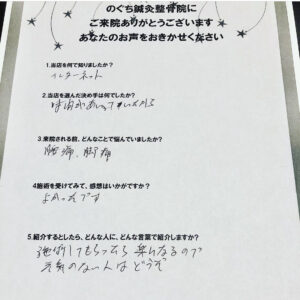 のぐち鍼灸整骨院に
ご来院ありがとうございます
あなたのお声をおきかせください
1.当店を何で知りましたか?
インターネット
2.当店を選んだ決め手は何でしたか?
時間があっていたから
3.来院される前、どんなことで悩んでいましたか?
腰痛、脚痛
4施術を受けてみて、感想はいかがですか?
よかったです
5.紹介するとしたら、どんな人に、どんな言葉で紹介しますか?
してもらったら 楽になるので
元気のない人は どうぞ